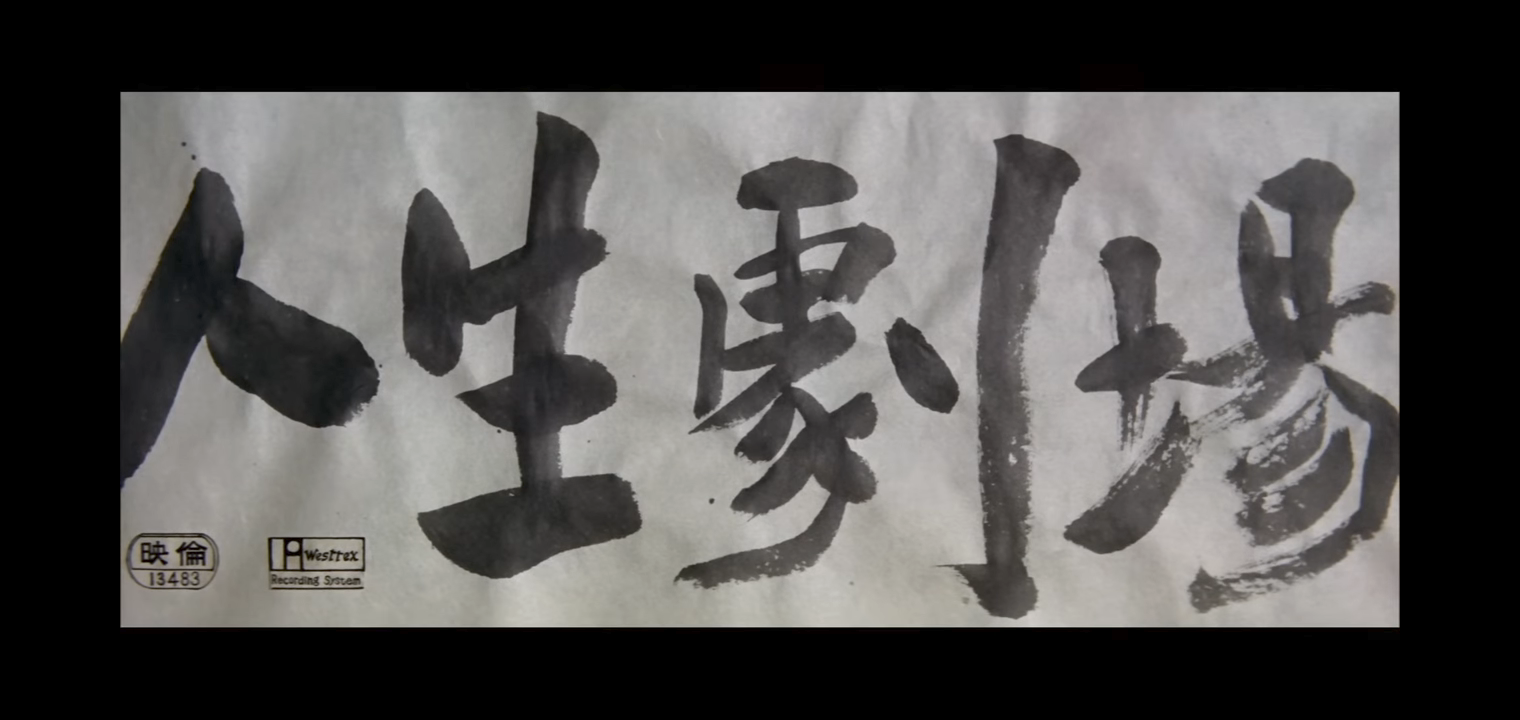 人生劇場
映倫
13483
Westrex
Recording System